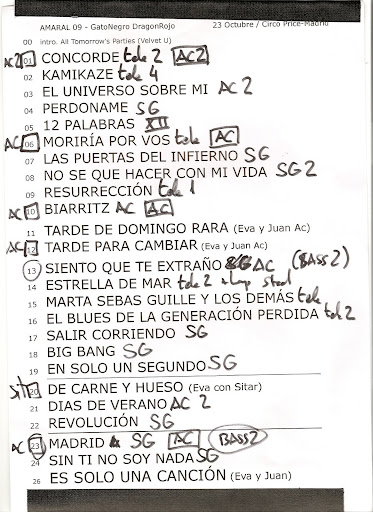 AMARAL 09 - GatoNegro DragonRojo 23 Octubre / Circo Price-Madrid
00 intro. All Tomorrow's Parties (Velvet U)
AC2 01 CONCORDE tele 2 AC2
02 KAMIKAZE tele 4
03 EL UNIVERSO SOBRE MI AC 2
04 PERDONAME SG
05 12 PALABRAS XII
AC 06 MORIRÍA POR VOS tele AC
07 LAS PUERTAS DEL INFIERNO SG
08 NO SE QUE HACER CON MI VIDA SG 2
09 RESURRECCIÓN tele 1
AC 10 BIARRITZ AC AC
11 TARDE DE DOMINGO RARA (Eva y Juan Ac)
AC 12 TARDE PARA CAMBIAR (Eva y Juan Ac)
13 SIENTO QUE TE EXTRAÑO AC (BASS 2)
14 ESTRELLA DE MAR tele 2 + lap steel
15 MARTA SEBAS GUILLE Y LOS DEMÁS tele
16 EL BLUES DE LA GENERACIÓN PERDIDA tele 2
17 SALIR CORRIENDO SG
18 BIG BANG SG
19 EN SOLO UN SEGUNDO SG
Sit 20 DE CARNE Y HUESO (Eva con Sitar)
21 DIAS DE VERANO AC 2
22 REVOLUCIÓN SG
AC 23 MADRID SG AC BASS2
24 SIN TI NO SOY NADA SG
26 ES SOLO UNA CANCIÓN (Eva y Juan)